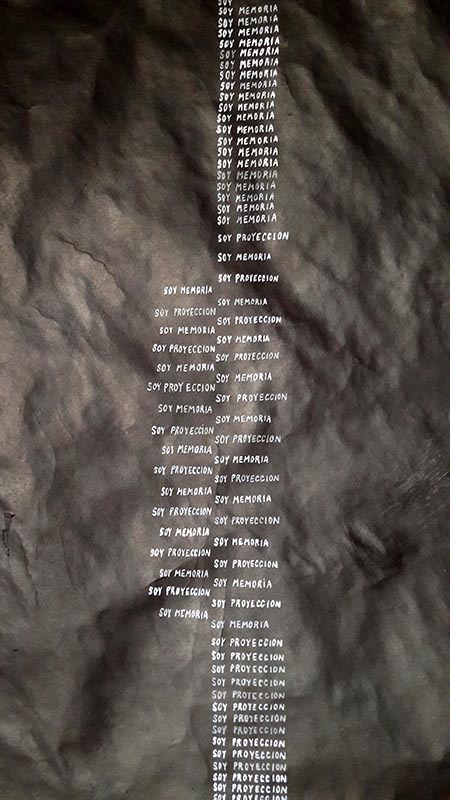 SOY
SOY MEMORIA
SOY MEMORIA
SOY MEMORIA
SOY MEMORIA
SOY MEMORIA
SOY MEMORIA
SOY MEMORIA
SOY MEMORIA
SOY MEMORIA
SOY MEMORIA
SOY MEMORIA
SOY MEMORIA
SOY MEMORIA
SOY MEMORIA
SOY MEMORIA
SOY MEMORIA
SOY MEMORIA
SOY MEMORIA
SOY MEMORIA
SOY MEMORIA
SOY PROYECCION
SOY MEMORIA
SOY PROYECCION
SOY MEMORIA
SOY MEMORIA
SOY PROYECCION
SOY PROYECCION
SOY MEMORIA
SOY MEMORIA
SOY PROYECCION
SOY PROYECCION
SOY MEMORIA
SOY MEMORIA
SOY PROYECCION
SOY PROYECCION
SOY MEMORIA
SOY MEMORIA
SOY PROYECCION
SOY PROYECCION
SOY MEMORIA
SOY MEMORIA
SOY PROYECCION
SOY PROYECCION
SOY MEMORIA
SOY MEMORIA
SOY PROYECCION
SOY PROYECCION
SOY MEMORIA
SOY MEMORIA
SOY PROYECCION
SOY PROYECCION
SOY MEMORIA
SOY MEMORIA
SOY PROYECCION
SOY PROYECCION
SOY MEMORIA
SOY MEMORIA
SOY PROYECCION
SOY PROYECCION
SOY PROYECCION
SOY PROYECCION
SOY PROYECCION
SOY PROYECCION
SOY PROYECCION
SOY PROYECCION
SOY PROYECCION
SOY PROYECCION
SOY PROYECCION
SOY PROYECCION
SOY PROYECCION